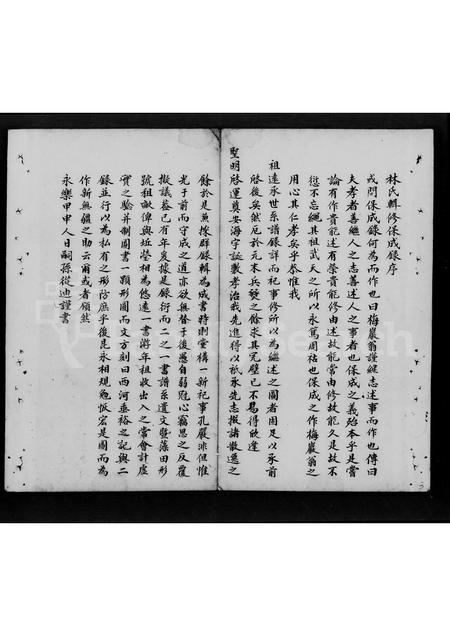 林氏輯修保成錄序
或問保成錄何為而作也曰梅巖翁謹繼志述事而作也傳曰
夫孝者善繼人之志善述人之事者也保成之義殆本乎是嘗
論有作貴能述有榮貴能修由述故能常由修故能久是故不
愆不忘繩其祖武天之所以永篤周祜也保成之作梅巖翁之
用心其仁孝矣乎恭惟我
祖遠承世系譜錄詳而祀事修所以為繼述之圖者用足以承前
啟後矣然厄於元末兵燹之餘求其完璧已不易得欣逢
聖明啟運奠安海宇誕敷孝治我先進得以祇承先志掇諸散逸之
餘於是蒐採群錄輯為成書特則堂構一新祀事孔嚴非但惟
光于前而守成之道亦欲無替于後愚自弱冠心竊思之反覆
擬議蓋已有年爰據是錄衍而二之一書譜系遺文暨藻田形
號租畝俾與坵塋相為悠遠一書游年租收出入之常會計虛
實之驗并制圖書一顆形圓而文方刻曰西河垂裕之記與二
錄並行以為私有之形防庶乎後昆永相規勉恢宏是圖而為
作新無疆之助云爾或者頷然
永樂甲申人日嗣孫從迪謹書